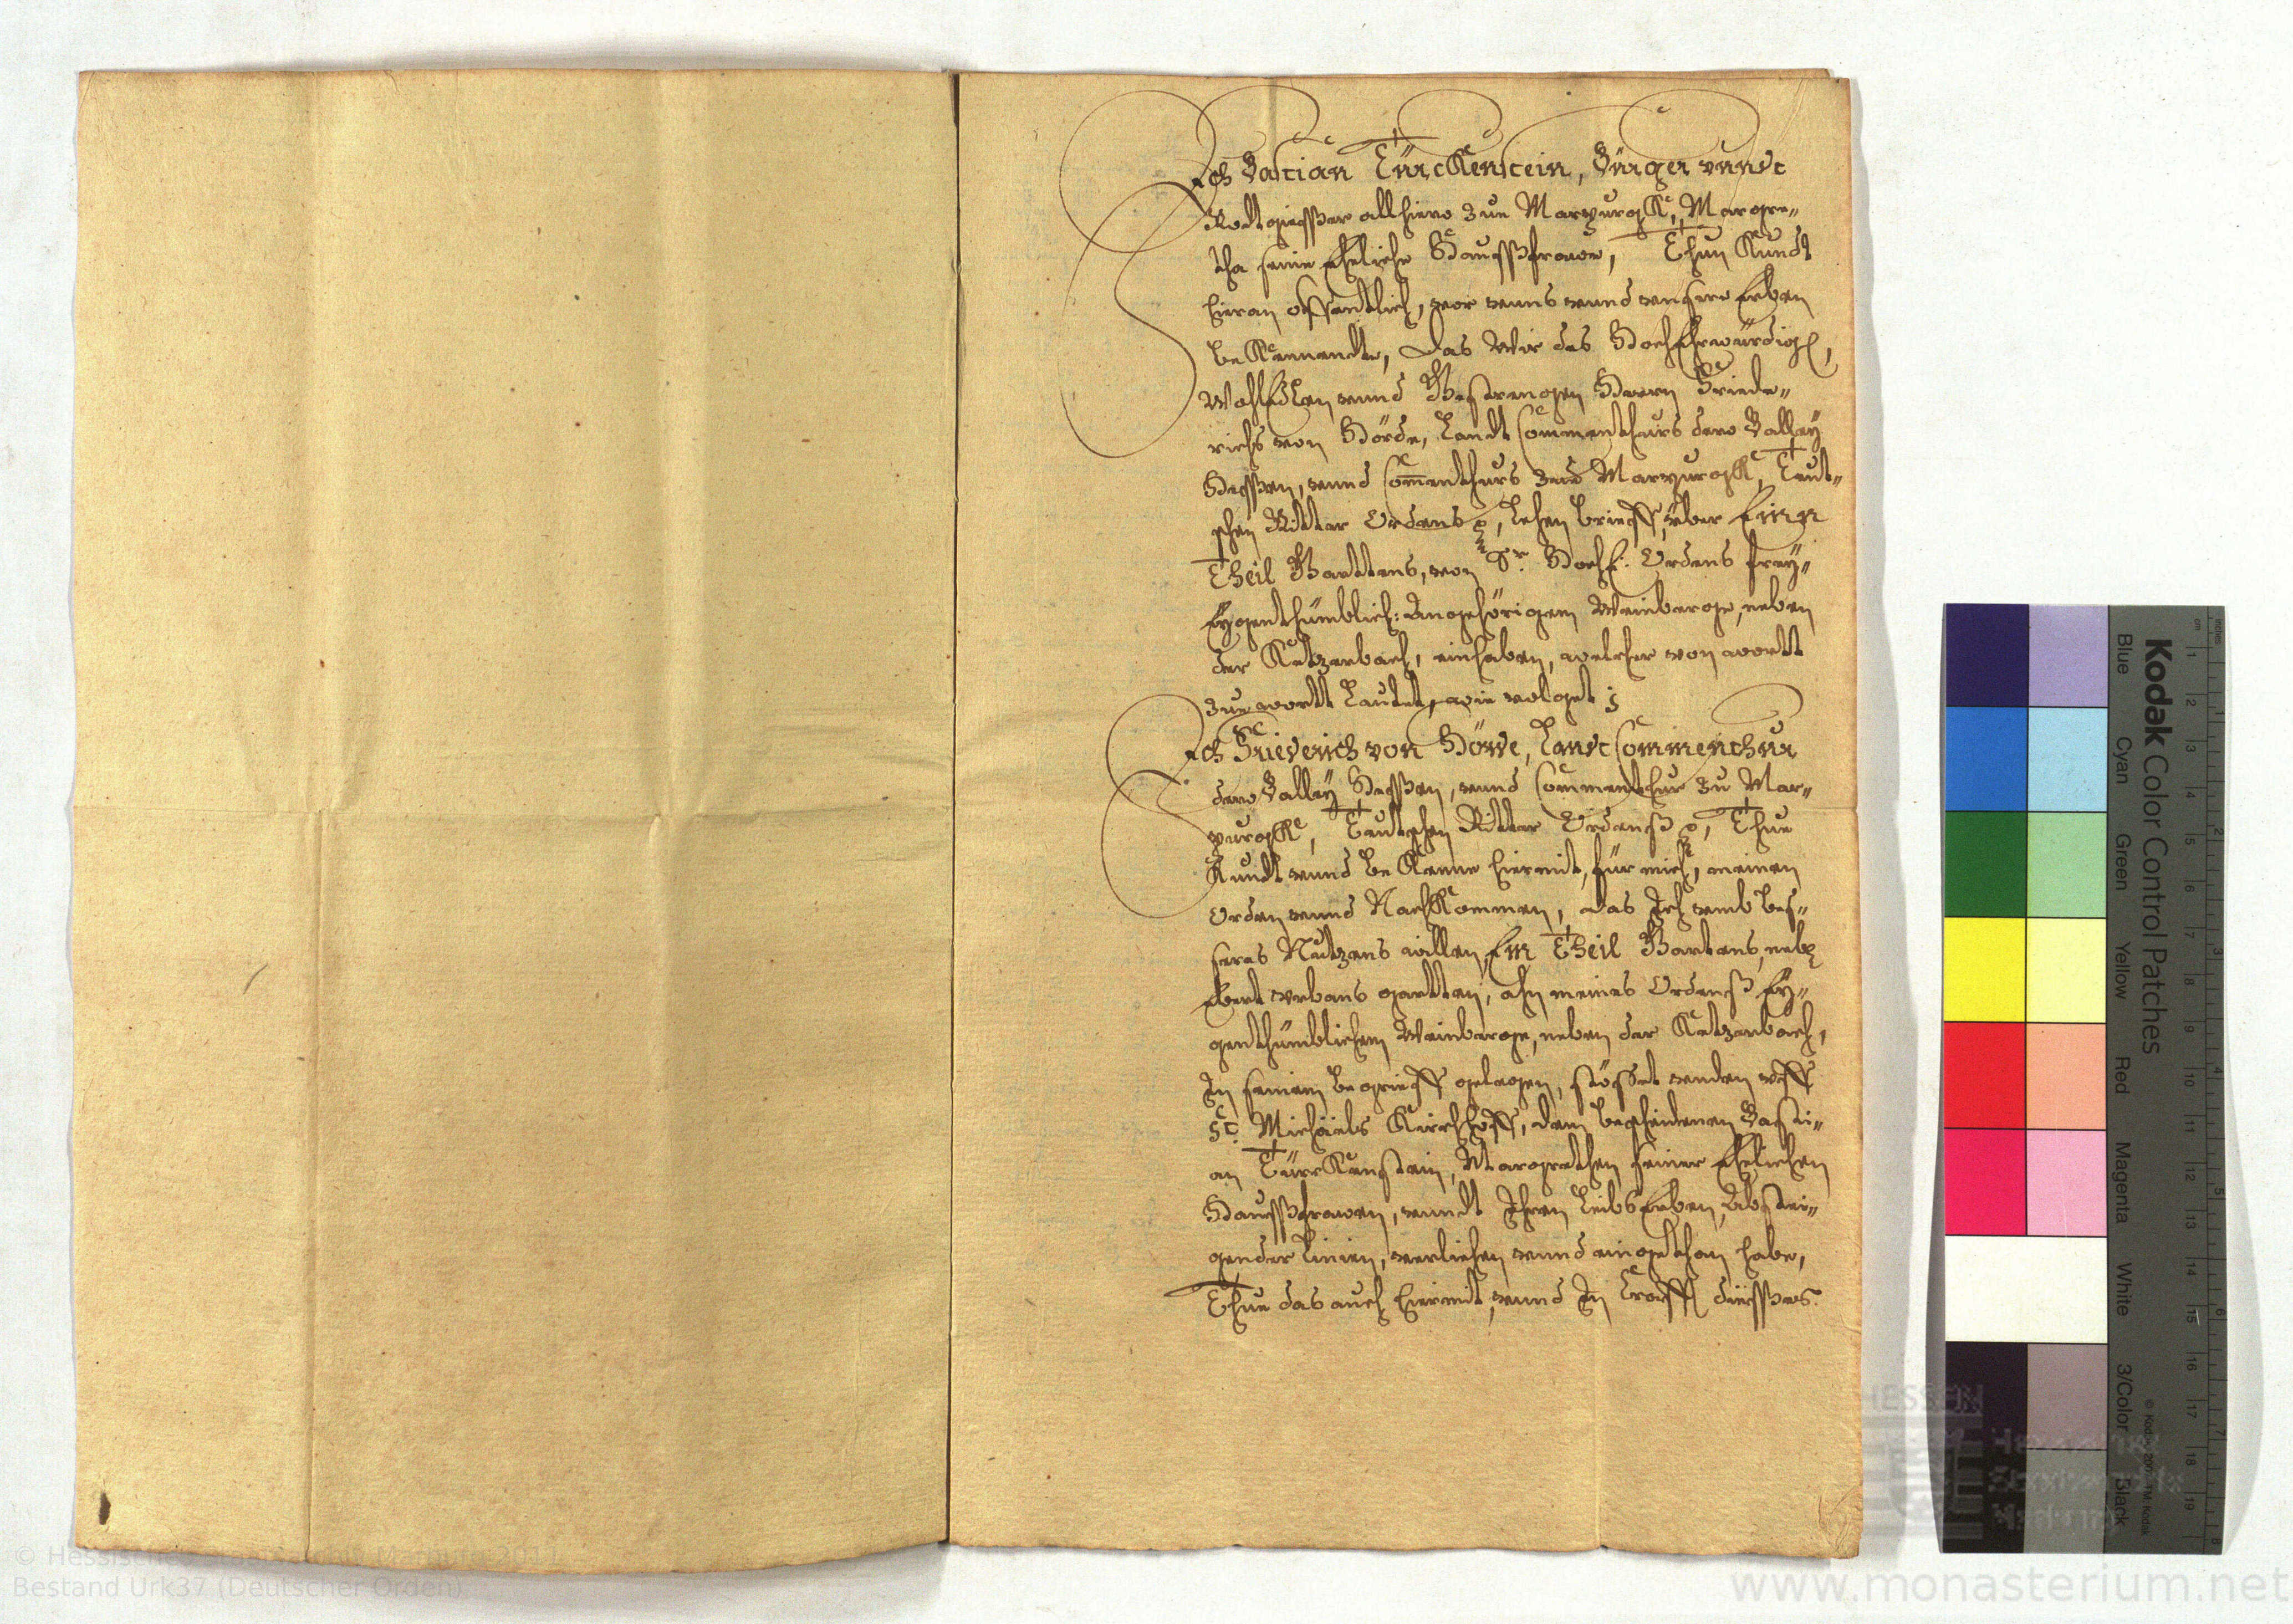 Ich Bastian Türckenstein, Bürger vnndt
Rodtgiesser allhiero zue Marpurgk, Margre„
tha seine Eheliche Haussfrawe, Thun Kundt
hieran offentlich, vor vnns vnnd vnsere Erben
bekennendte, das Wir des HochEhrwürdig,
WohlEdlen vnnd Gestrengen Herrn Friede„
richs von Hörde, Landt Commenthurs dero Balley
Hessen, vnnd Com̄enthurs zue Marpurgk, Teut„
schen Ritter Ordens , Lehen brieff, über Einn
Theil Garttens, von Sr. HochE: Ordens frey„
Eygenthümblich: Angehörigem Weinberge, neben
der Ketzerbach, einhaben, welcher von wortt
zue wortt Lautet, wie volget ;
Ich Friederich von Hörde, Landt Commenthur
dero Balley Hessen, vnnd Commenthur zu Mar„
purgk, Teutschen Ritter Ordenß , Thue
Kundt vnnd bekenne hiermit, für mich, meinen
Orden vnnd Nachkommen, das Ich vmb bes„
seres Nutzens willen, Ein Theil Gartens, neben
Ebert Vrbans gartten, ahn meines Ordenß Ey„
genthümblichem Weinberge, neben der Ketzerbach,
In seinem begrieff gelegen, stösset vnden vff
St. Michäels Kirchhoff, dem bescheidenen Basti„
an Türckenstein, Margrethen seiner Ehelichen
Haussfrawen, vnndt Ihren LeibsErben, Abstei„
gender Linien, verliehen vnnd eingethan habe,
Thue das auch hiermit, vnnd In Crafft diesses.
Kodak Color Control Patches
Blue Cyan Green Yellow Red Magenta White 3/Color Black
inches 1 2 3 4 5 6 7 8
cm 1 2 3 4 5 6 7 8 9 10 11 12 13 14 15 16 17 18 19
HESSEN
© Hessisches Staatsarchiv Marburg 2011
Bestand Urk37 (Deutscher Orden)
www.monasterium.net